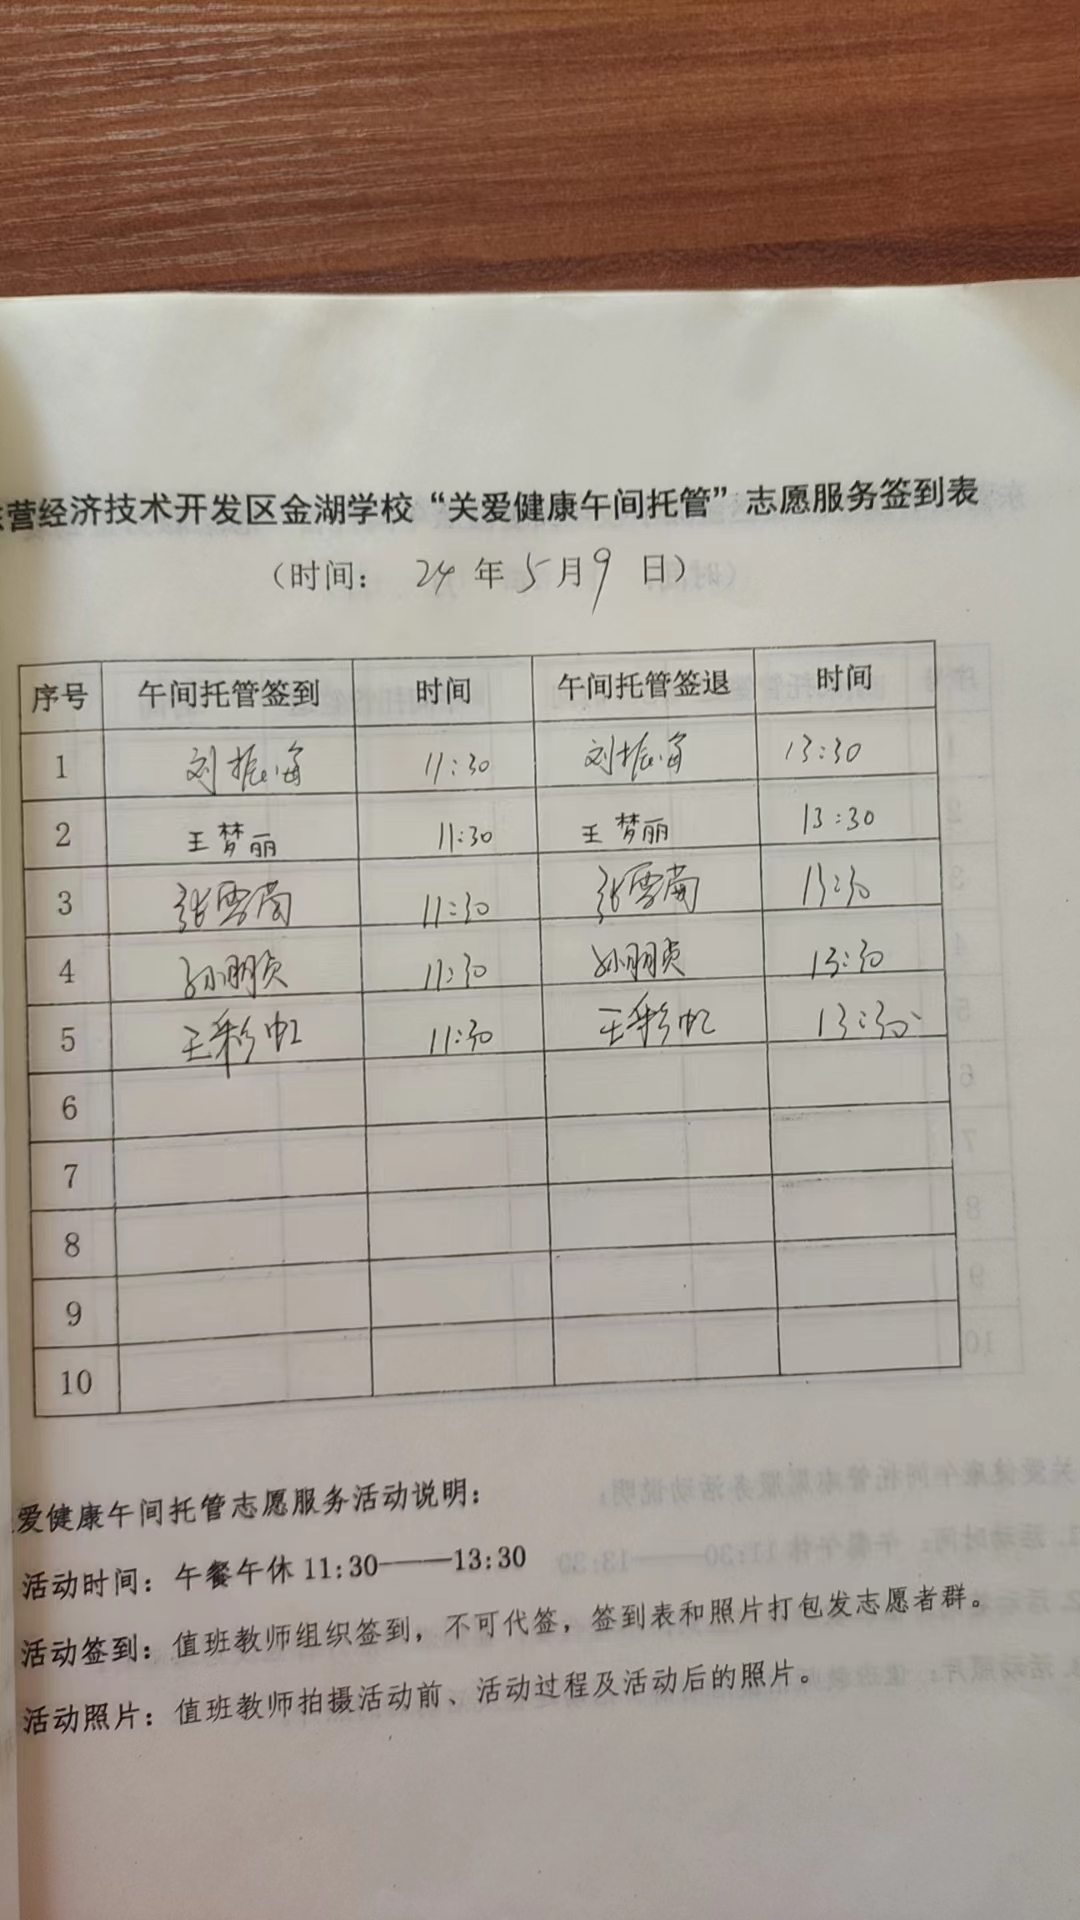 营经济技术开发区金湖学校“关爱健康午间托管”志愿服务签到表
（时间： 24 年 5 月 9 日）
序号 午间托管签到 时间 午间托管签退 时间
1 刘振海 11:30 刘振海 13:30
2 王梦丽 11:30 王梦丽 13:30
3 张雪菊 11:30 张雪菊 13:30
4 孙朋贞 11:30 孙朋贞 13:30
5 王彩虹 11:30 王彩虹 13:30
6
7
8
9
10
爱健康午间托管志愿服务活动说明：
活动时间：午餐午休 11:30——13:30
活动签到：值班教师组织签到，不可代签，签到表和照片打包发志愿者群。
活动照片：值班教师拍摄活动前、活动过程及活动后的照片。